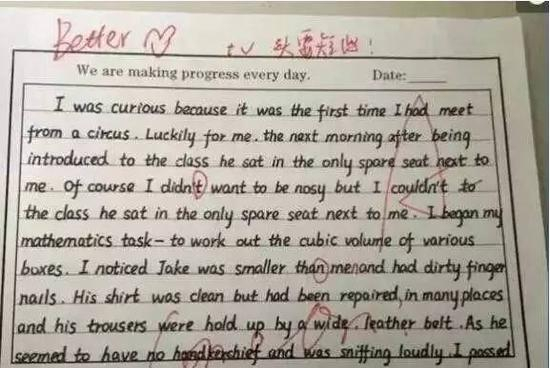 Better
tv 头要短些!
We are making progress every day. Date:
I was curious because it was the first time I had meet
from a circus. Luckily for me, the next morning after being
introduced to the class he sat in the only spare seat next to
me. Of course I didn't want to be nosy but I couldn't to
the class he sat in the only spare seat next to me. I began my
mathematics task - to work out the cubic volume of various
boxes. I noticed Jake was smaller than menand had dirty finger
nails. His shirt was clean but had been repaired, in many places
and his trousers were hold up by a wide, leather belt. As he
seemed to have no handkerchief and was sniffing loudly. I passed